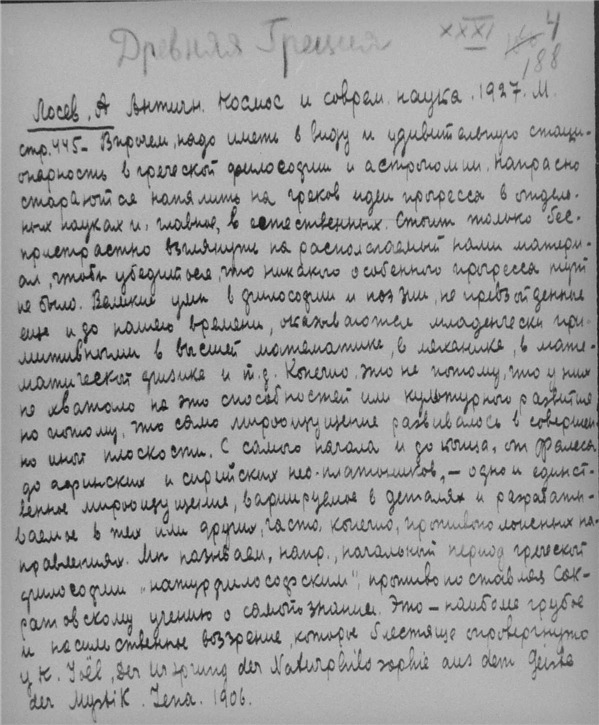 Древняя Греция
XXXI 4
188
Лосев, А Антич. Космос и соврем. наука. 1927. М.
стр. 445 – Впрочем, надо иметь в виду и удивительную стаци-
онарность в греческой философии и астрономии. Напрасно
стараются напялить на греков идеи прогресса в отдель-
ных науках и, главное, в естественных. Стоит только бес-
пристрастно взглянуть на располагаемый нами матери-
ал, чтобы убедиться, что никакого особенного прогресса тут
не было. Великие умы в философии и поэзии, не превзойденные
еще и до нашего времени, оказываются младенчески при-
митивными в высшей математике, в механике, в мате-
матической физике и т.д. Конечно, это не потому, что у них
не хватало на это способностей или культурного развития
но потому, что само мироощущение развивалось в совершен-
но иной плоскости. С самого начала и до конца, от Фалеса
до афинских и сирийских нео-платоников, – одно и единст-
венное мироощущение, варьируемое в деталях и разрабаты-
ваемое в тех или других, часто, конечно, противоположенных на-
правлениях. Мы называем, напр., начальный период греческой
философии "натурфилософским", противопоставляя Сок-
ратовскому учению о самопознании. Это – наиболее грубое
и насильственное воззрение, которое блестяще опровергнуто
у К. Joël, Der Ursprung der Naturphilosophie aus dem Geiste
der Mystik. Jena. 1906.